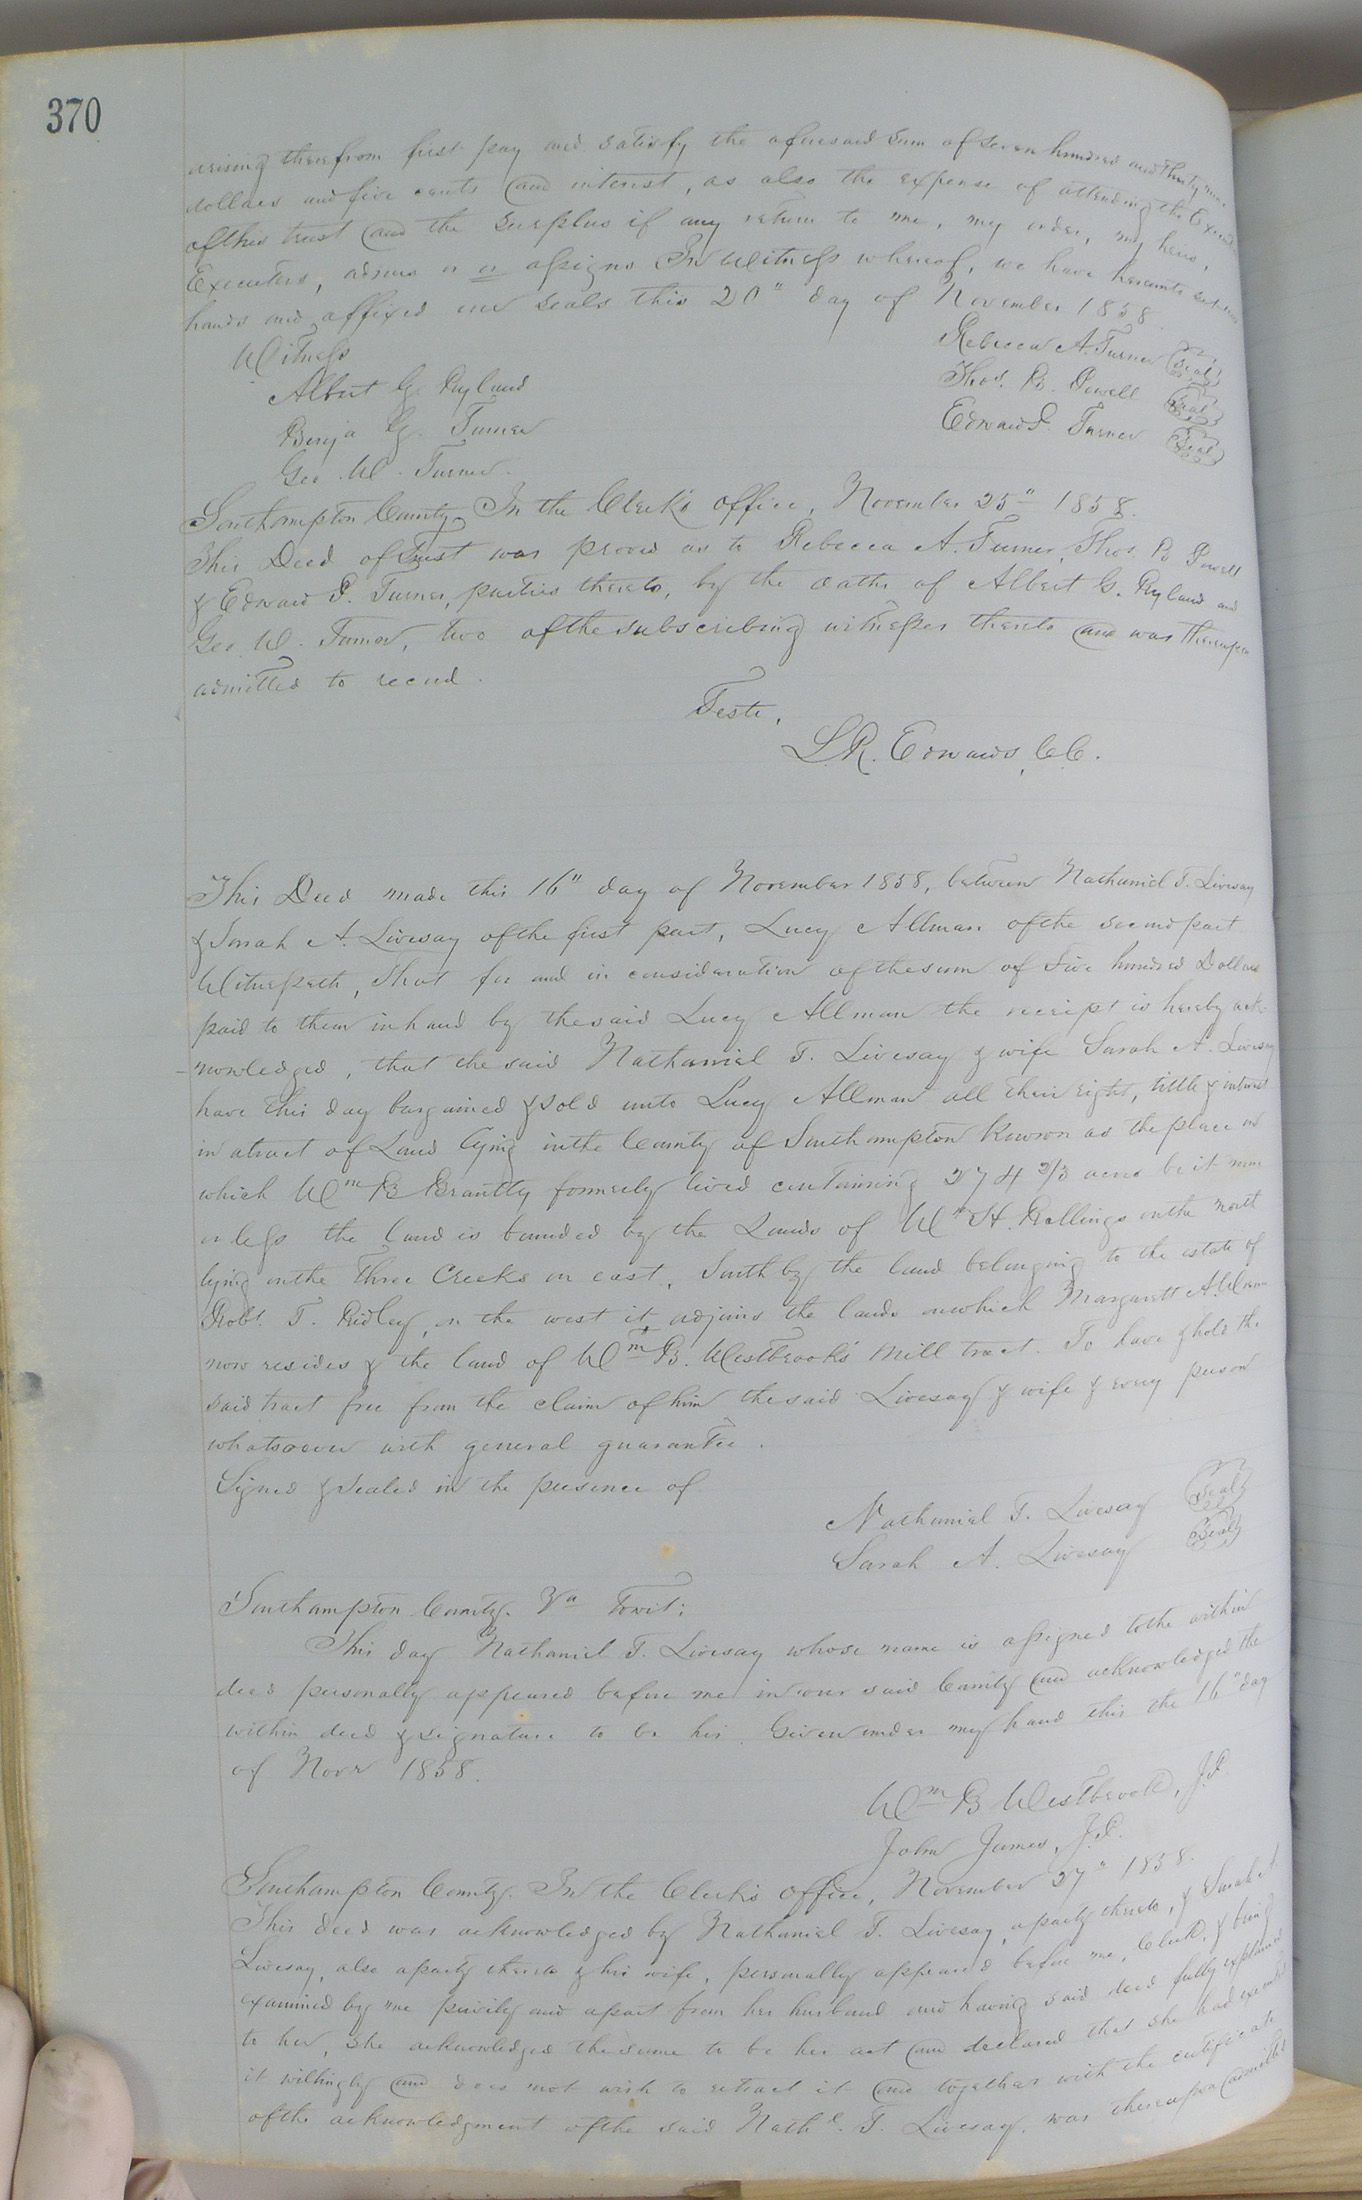 370
arising therefrom first pay and satisfy the aforesaid sum of seven hundred and thirty nine
dollars and five cents and interest, as also the expense of attending the
of this trust and the surplus if any return to me, my order, my heirs,
Executors, admrs or or assigns In Witness whereof, we have hereunto set our
hands and affixed our seals this 20" day of November 1858
Witness
Rebecca A. Turner Seal
Albert G. Ryland
Thos. B. Powell Seal
Benja G. Turner
Edward P. Turner Seal
Geo. W. Turner.
Southampton County, In the Clerk's office, November 25" 1858.
This Deed of Trust was proved as to Rebecca A. Turner, Thos. B Powell
& Edward P. Turner, parties thereto, by the oaths of Albert G. Ryland and
Geo. W. Turner, two of the subscribing witnesses thereto and was thereupon
admitted to record.
Teste,
L.R. Edwards, C.C.
This Deed made this 16" day of November 1858, between Nathaniel T. Livesay
& Sarah A. Livesay of the first part, Lucy Allman of the second part
Witnesseth, That for and in consideration of the sum of Five hundred Dollars
paid to them in hand by the said Lucy Allman the receipt is hereby ack-
nowledged, that the said Nathaniel T. Livesay & wife Sarah A. Livesay
have this day bargained & sold unto Lucy Allman all their right, tittle & interest
in a tract of Land lying in the County of Southampton known as the place on
which Wm B Brantly formerly lived containing 274 2/3 acres be it more
or less the land is bounded by the Lands of Wm H. Rallings on the north
lying on the Three Creeks on east, South by the land belonging to the estate of
Robt. T. Ridley, on the west it adjoins the lands on which Margarett A.
now resides & the land of Wm B. Westbrook's Mill tract. To have & hold the
said tract free from the claim of him the said Livesay & wife & every person
whatsoever with general guarantee.
Signed & Sealed in the presence of
Nathaniel T. Livesay Seal
Sarah A. Livesay Seal
Southampton County. Va Towit:
This day Nathaniel T. Livesay whose name is assigned to the within
deed personally appeared before me in our said County and acknowledged the
within deed & signature to be his Given under my hand this the 16" day
of Novr 1858.
Wm B Westbrook, J.P.
John James, J.P.
Southampton County. In the Clerk's office, November 27" 1858.
This deed was acknowledged by Nathaniel T. Livesay, a party thereto, & Sarah A.
Livesay, also a party thereto & his wife, personally appeared before me, Clerk, & being
examined by me privily and apart from her husband and having said deed fully explained
to her, she acknowledged the same to be her act and declared that she had executed
it willingly and does not wish to retract it and together with the certificate
of the acknowledgment of the said Nathl. T. Livesay. was thereupon admitted